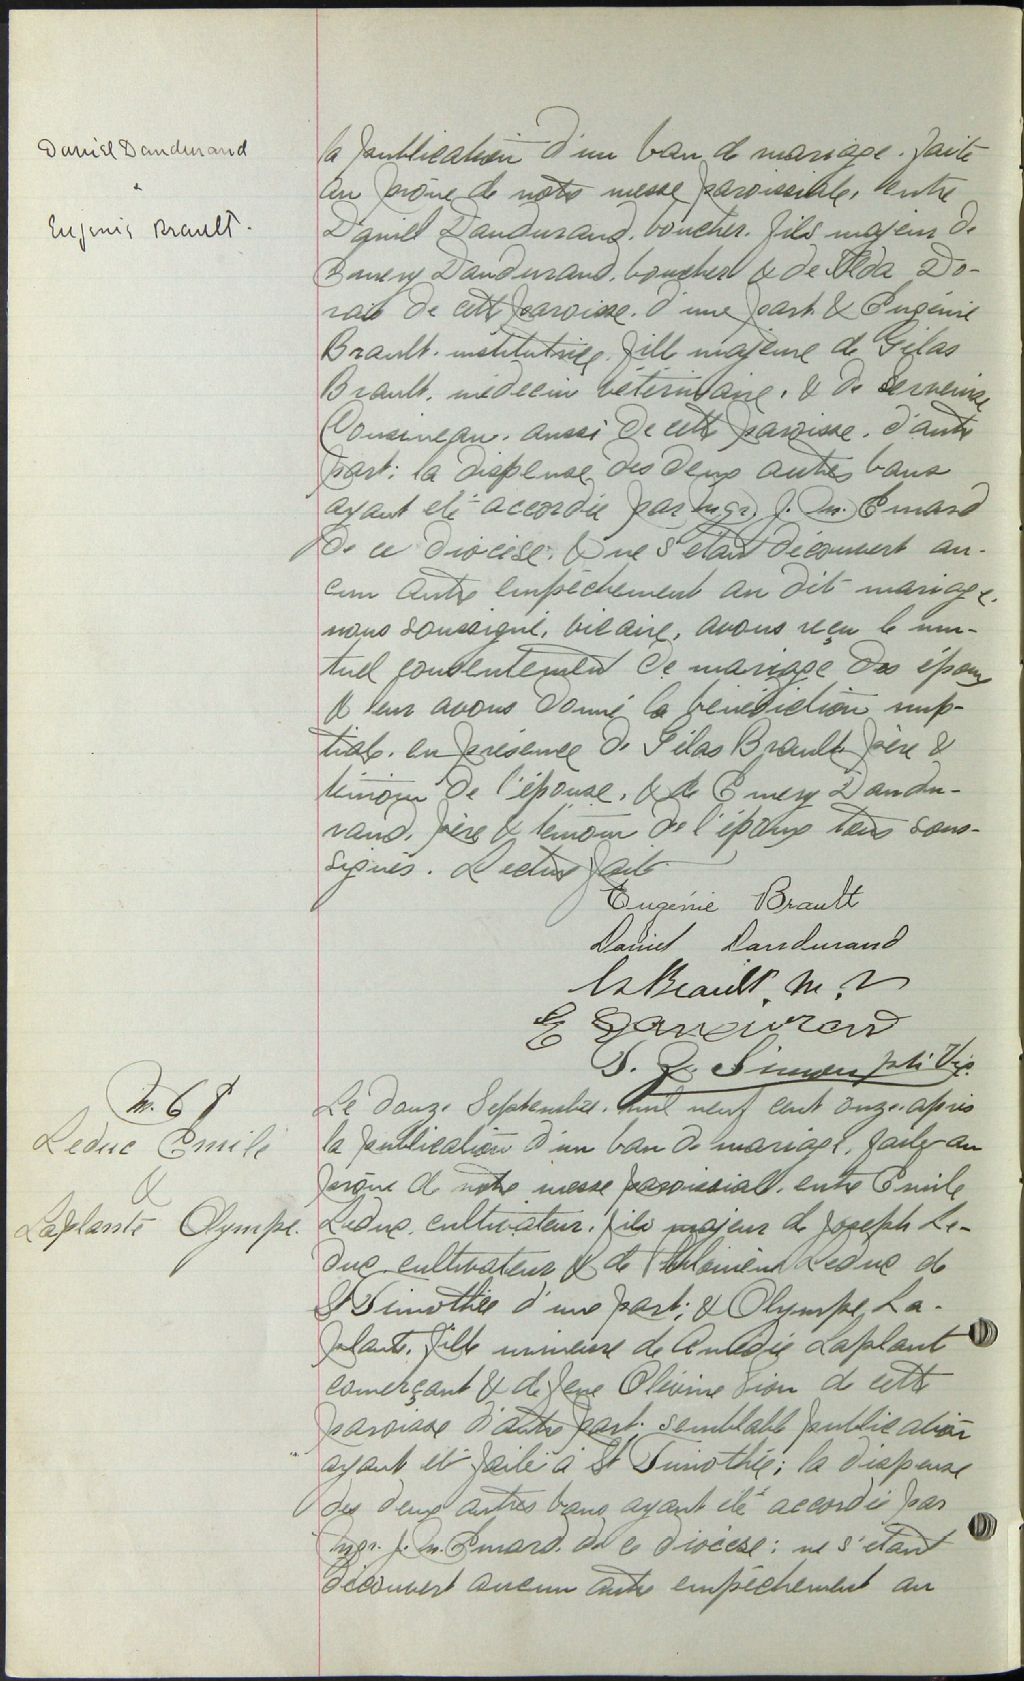 Daniel Dandurand
&
Eugénie Brault.
la publication d'un ban de mariage. faite
au prône de notre messe paroissiale, entre
Daniel Dandurand, boucher, fils majeur de
Emery Dandurand, boucher & de Alda Do-
rais de cette paroisse, d'une part & Eugénie
Brault, institutrice, fille majeure de Gilas
Brault, médecin vétérinaire, & de
Cousineau, aussi de cette paroisse, d'autre
part: la dispense des deux autres bans
ayant été accordée par Mgr. J. M. Emard
de ce diocèse, & ne s'étant découvert au-
cun autre empêchement au dit mariage,
nous soussigné, vicaire, avons reçu le mu-
tuel consentement de mariage des époux
& leur avons donné la bénédiction nup-
tiale, en présence de Gilas Brault père &
témoin de l'épouse, & de Emery Dandu-
rand, père & témoin de l'époux tous sous-
signés. Lecture faite
Eugénie Brault
Daniel Dandurand
Brault. M. V
E Dandurand
J. Simon ptr Vic.
M. 68
Leduc Emile
&
Laplante Olympe.
Le douze Septembre, mil neuf cent onze, après
la publication d'un ban de mariage, faite au
prône de notre messe paroissiale, entre Emile
Leduc, cultivateur, fils majeur de Joseph Le-
duc, cultivateur & de Philomène Leduc de
St Timothée d'une part; & Olympe La-
plante, fille mineure de Amédie Laplante
comerçant & de feue Olévine Pion de cette
paroisse d'autre part; semblable publication
ayant été faite à St Timothée; la dispense
des deux autres bans ayant été accordée par
Mgr. J. M. Emard, de ce diocèse: ne s'étant
découvert aucun autre empêchement au